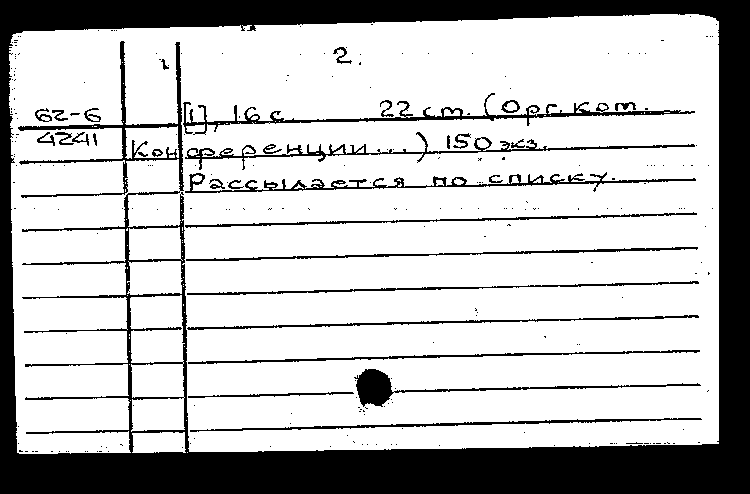 2.
62-6
4241
[1], 16 с 22 ст. (Орг. ком.
Конференции...) 150 экз.
Рассылается по списку.